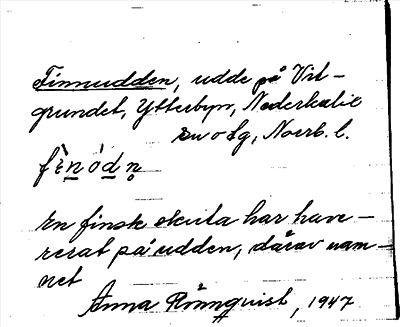 Finnudden, udde på Vit-
grundet, Ytterbyn, Nederkalix
sn o lg, Norrb. l.
fìn ó̀dn̥
En finsk skuta har have-
rerat på udden, därav nam-
net
Anna Rönnquist, 1947